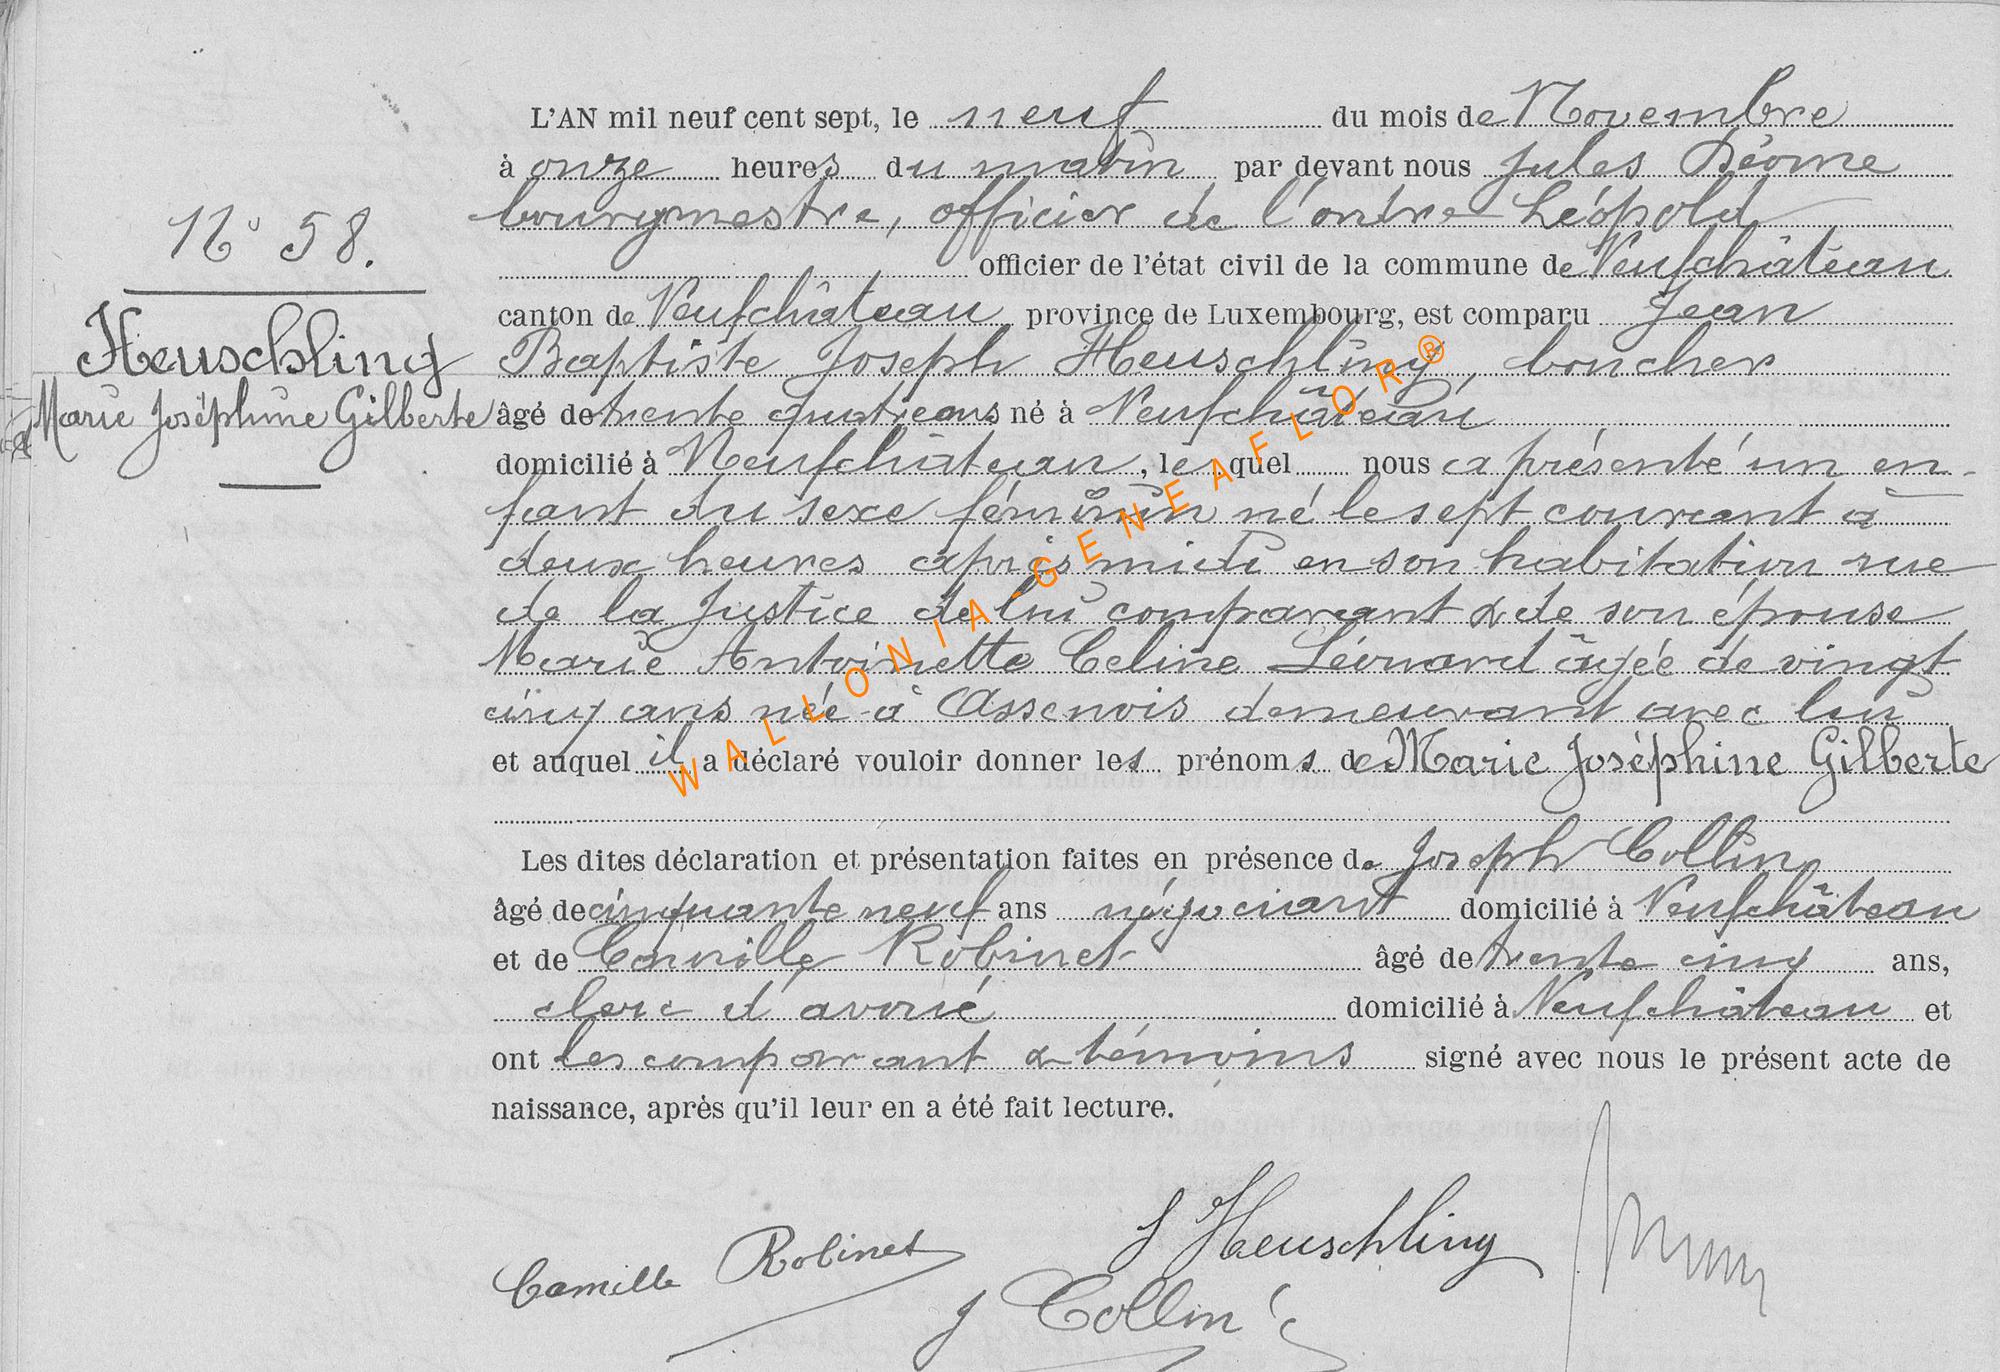 N° 58.
Heuschling
Marie Joséphine Gilberte
L'AN mil neuf cent sept, le neuf du mois de Novembre
à onze heures du matin par devant nous Jules Déome
bourgmestre, officier de l'ordre Léopold
officier de l'état civil de la commune de Neufchâteau
canton de Neufchâteau province de Luxembourg, est comparu Jean
Baptiste Joseph Heuschling, boucher
âgé de trente quatre ans né à Neufchâteau
domicilié à Neufchâteau, lequel nous a présenté un en-
fant du sexe féminin né le sept courant à
deux heures après midi en son habitation rue
de la Justice de lui comparant & de son épouse
Marie Antoinette Celine Léonard âgée de vingt
cinq ans née à Assenois demeurant avec lui
et auquel il a déclaré vouloir donner les prénoms de Marie Joséphine Gilberte
Les dites déclaration et présentation faites en présence de Joseph Collin
âgé de cinquante neuf ans négociant domicilié à Neufchâteau
et de Camille Robinet âgé de trente cinq ans,
clerc d'avoué domicilié à Neufchâteau et
ont les comparant & témoins signé avec nous le présent acte de
naissance, après qu'il leur en a été fait lecture.
J Heuschling
Camille Robinet
J Collin
WALLONIA-GENEAFLOR®